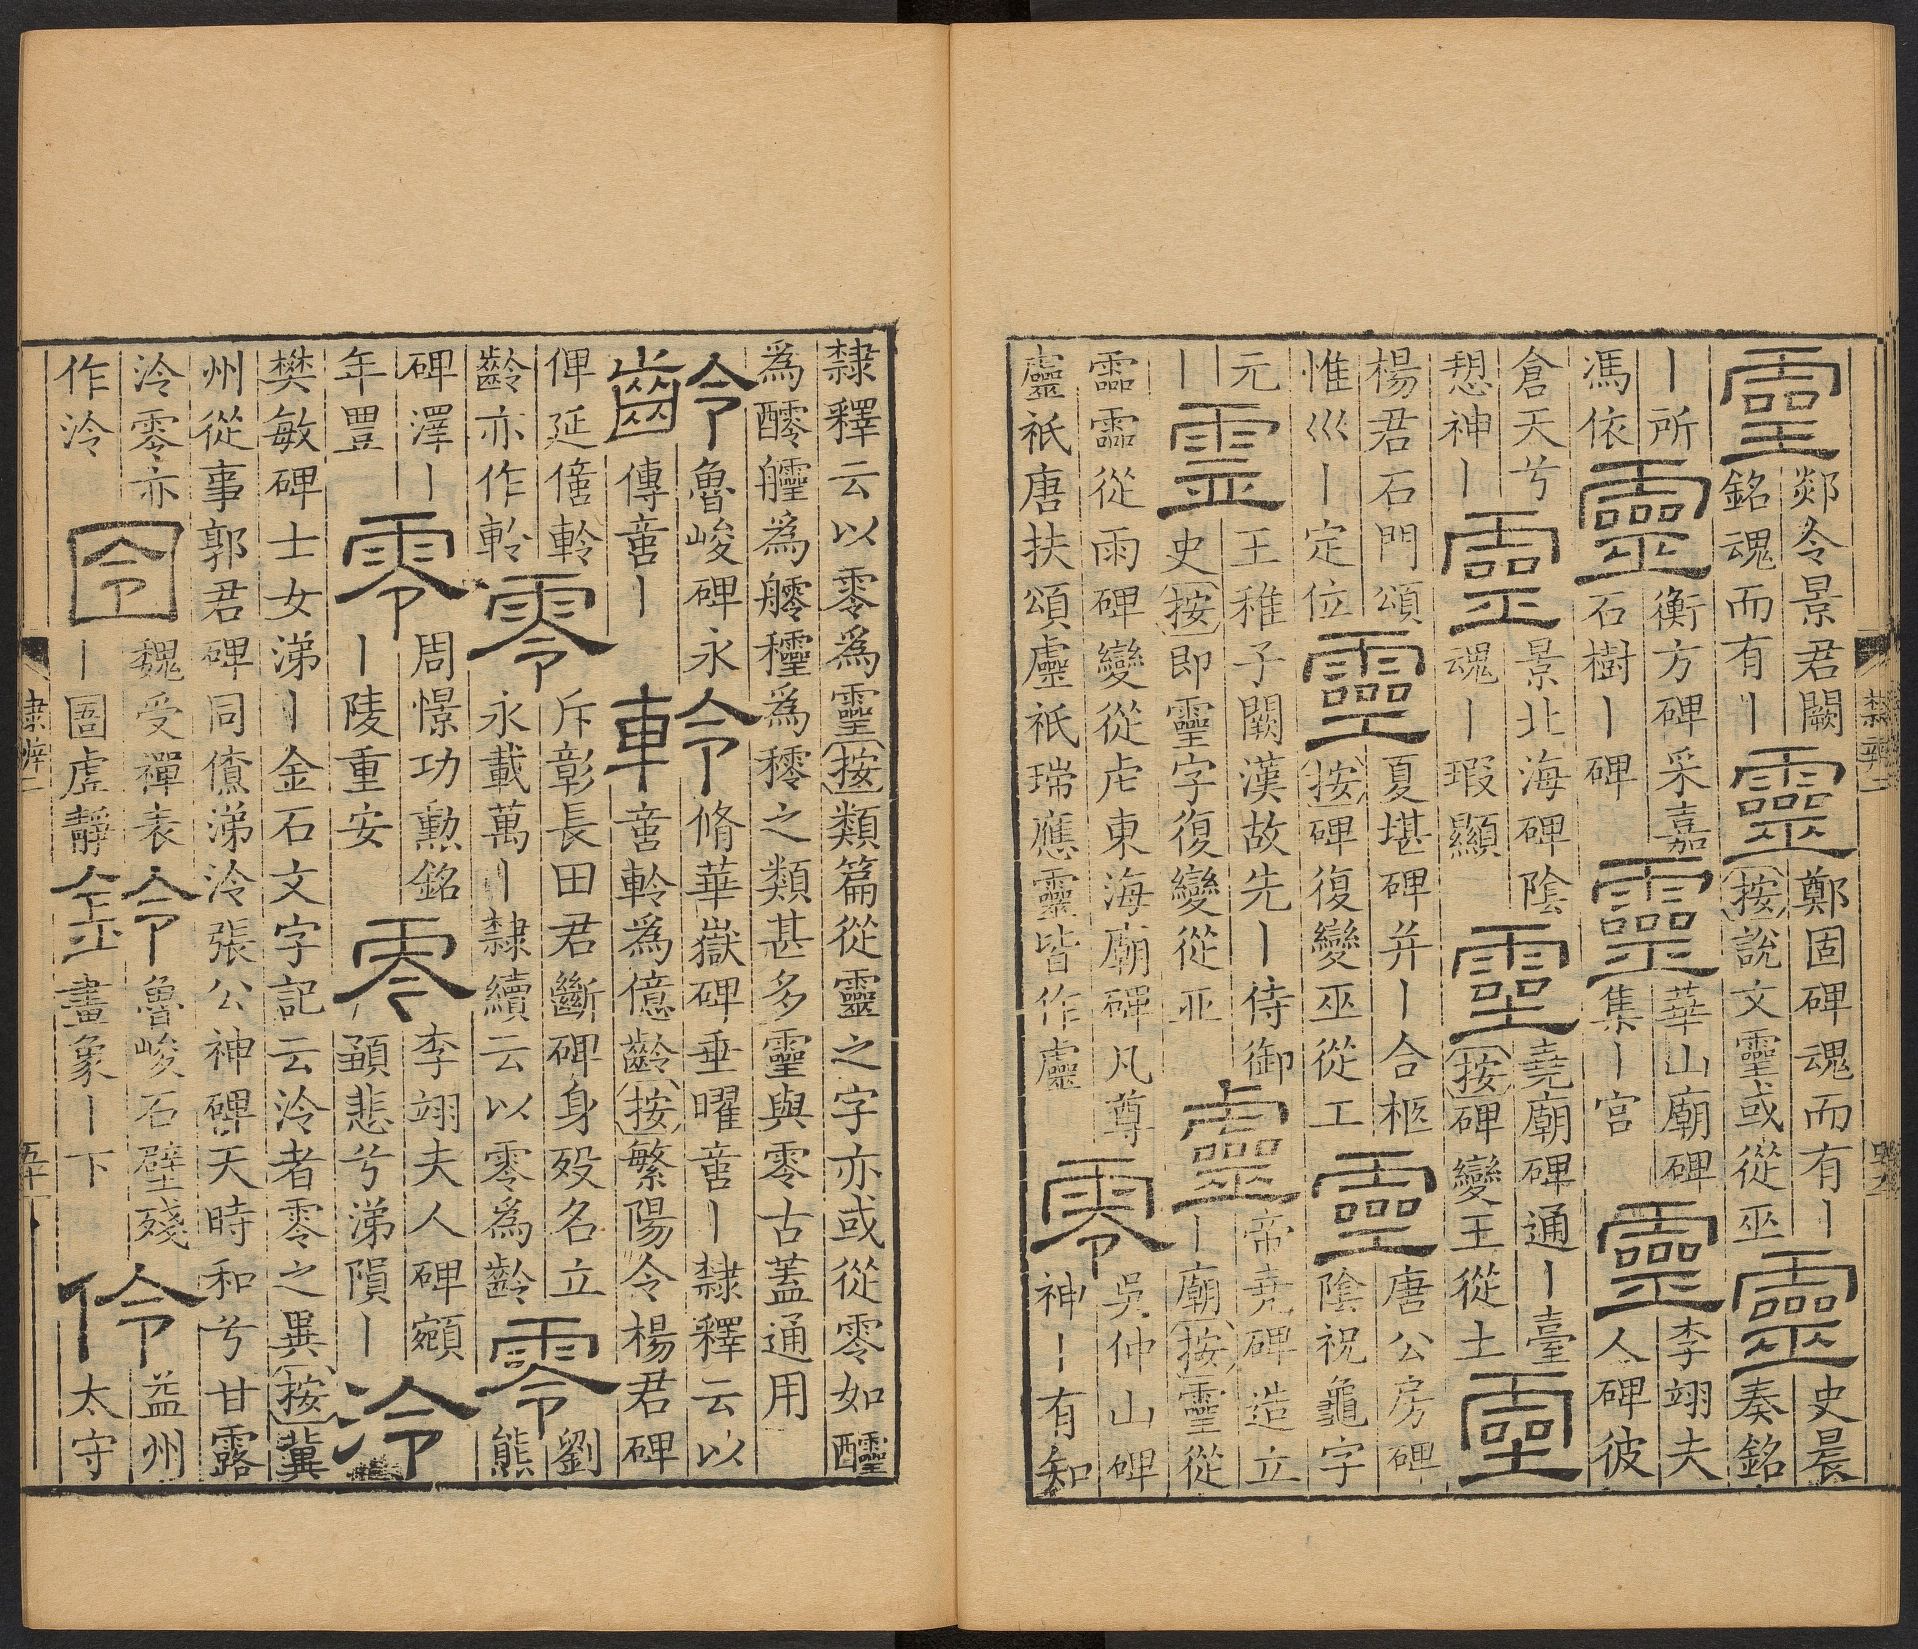 靈
郯令景君闕
銘魂而有丨
靈
鄭固碑魂而有丨
按說文靈或從巫
靈
史晨
奏銘
丨所
馮依
靈
衡方碑采嘉
石樹丨碑
靈
華山廟碑
集丨宮
靈
李翊夫
人碑彼
倉天兮
憩神丨
靈
景北海碑陰
魂丨瑕顯
靈
堯廟碑通丨臺
按碑變王從土
靈
楊君石門頌
惟巛丨定位
靈
夏堪碑并丨合柩
按碑復變巫從工
靈
唐公房碑
陰祝龜字
元
丨
靈
王稚子闕漢故先丨侍御
史按即靈字復變從亚
靈
帝尭碑造立
丨廟按靈從
霝霝從雨碑變從虍東海廟碑凡尊
靈祇唐扶頌靈祇瑞應靈皆作
零
吳仲山碑
神丨有知
隸辨二
隸釋云以零爲靈按類篇從靈之字亦或從零如
爲爲之類甚多靈與零古蓋通用
齡
魯峻碑永
傳啻丨
軨
脩華嶽碑垂曜啻丨隸釋云以
啻軨爲億齡按繁陽令楊君碑
俾延億軨
齡亦作軨
零
斥彰長田君斷碑身歿名立
永載萬丨隸續云以零爲齡
零
劉
熊
碑澤丨
年豐
零
周憬功勲銘
丨陵重安
零
李翊夫人碑
顧悲兮涕隕丨
泠
樊敏碑士女涕丨金石文字記云泠者零之異按冀
州從事郭君碑同儐涕泠張公神碑天時和兮甘露
泠零亦
作泠
囹
魏受禪表
丨圄虛靜
令
魯峻石壁殘
畫象丨下
伶
益州
太守
隸辨二
五十